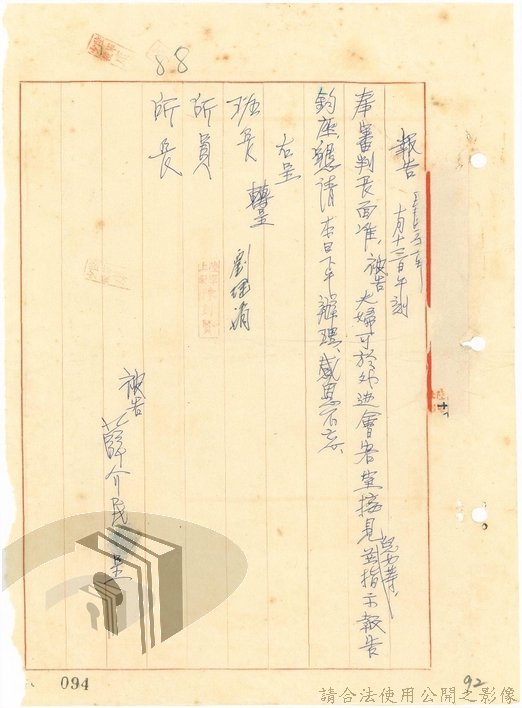 88
報告
十月十三日午刻
奉審判長面准，被告夫婦可於外边會客室接見兒女等並指示報告
鈞座，懇請本日下午辦理，感恩不忘。
右呈
班長 轉呈
所員
所長
被告 薛介民 呈
094
92
請合法使用公開之影像